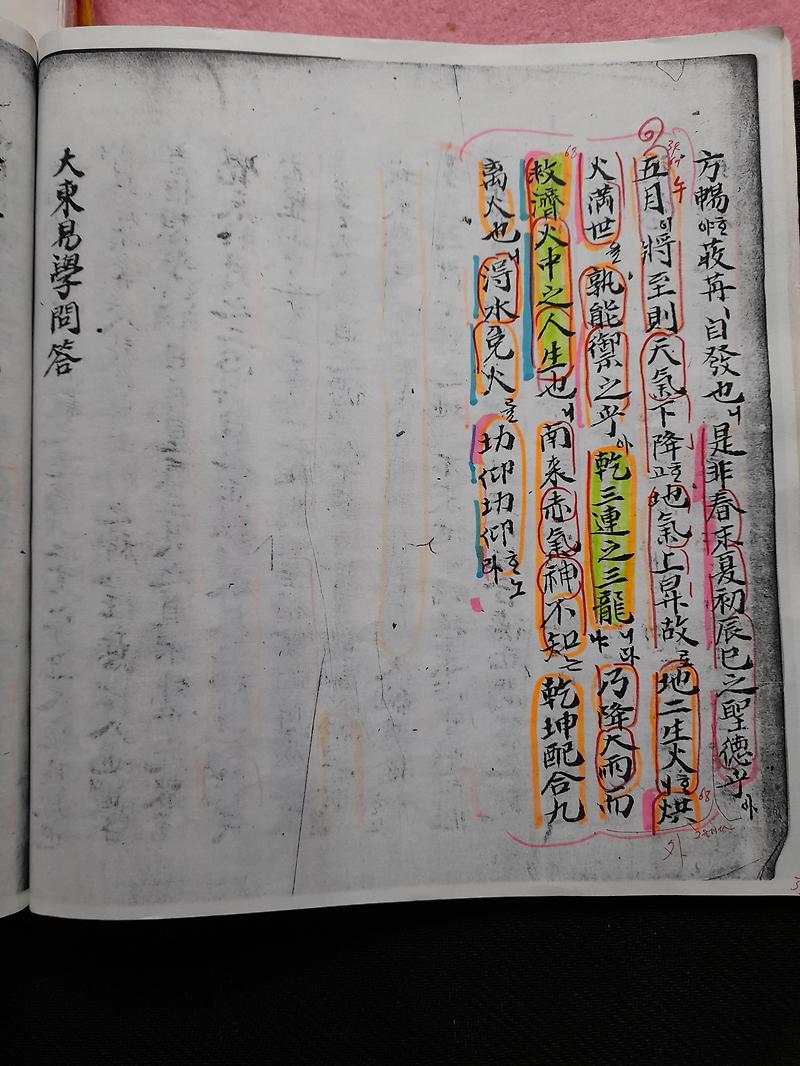 方暢야호荍苒、自發也니是非春末夏初辰巳之聖德乎아
五月이將至則天氣下降고호地氣上昇故로地二生火호니烘
火滿世를孰能禦之乎아乾三連之三龍이니라乃降大雨而
救濟火中之人生也니南來赤氣神不知는乾坤配合九
离火也니淂水克火를功仰功仰호노라
大東易學問答
午
68
68
外